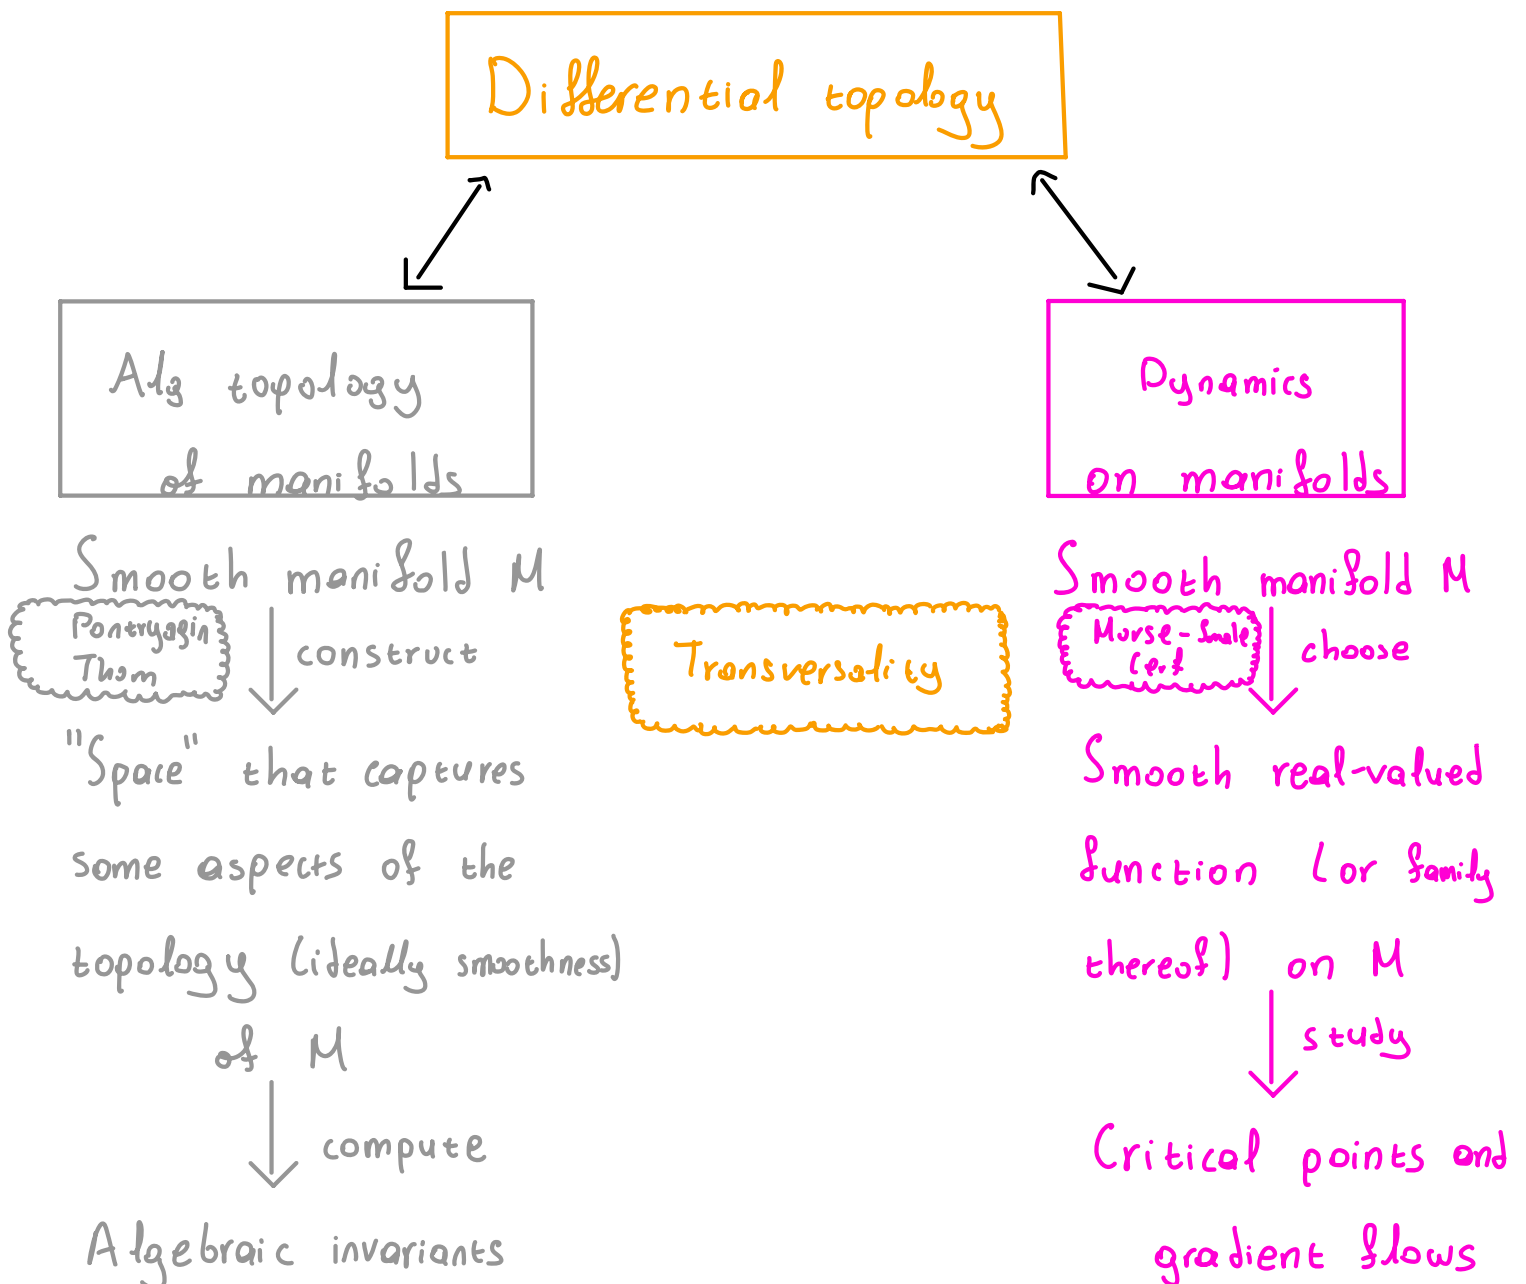 Differential topology
Alg topology
of manifolds
Smooth manifold M
Pontryagin
Thom
construct
"Space" that captures
some aspects of the
topology (ideally smoothness)
of M
compute
Algebraic invariants
Transversality
Dynamics
on manifolds
Smooth manifold M
Morse-Smale
Cerf
choose
Smooth real-valued
function (or family
thereof) on M
study
Critical points and
gradient flows